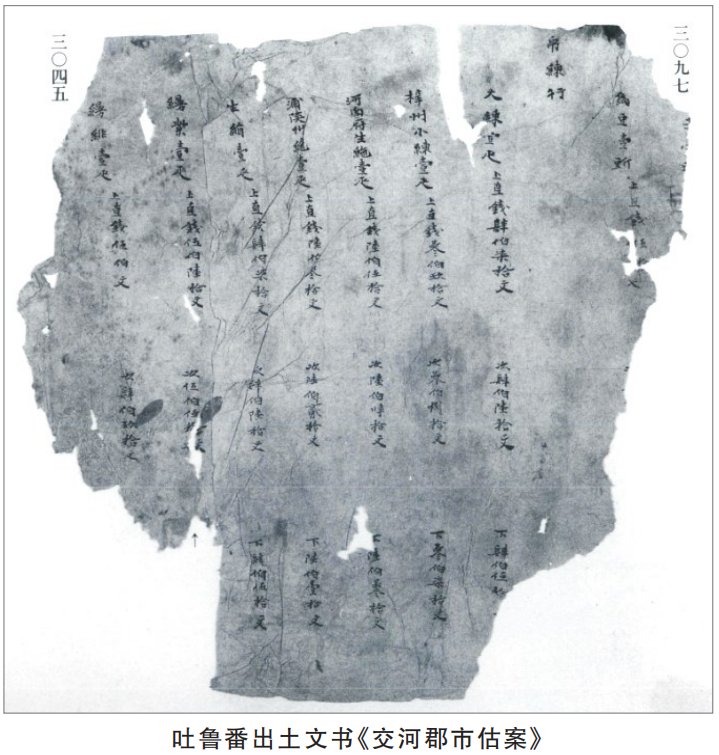 三〇九七
上直錢伍
帛練行
大練壹疋 上直錢肆伯柒拾文 次肆伯陸拾文 下肆伯伍拾
梓州小練壹疋 上直錢叁伯玖拾文 次叁伯捌拾文 下叁伯柒拾文
河南府生絁壹疋 上直錢陸伯伍拾文 次陸伯肆拾文 下陸伯叁拾文
蒲陝州絁壹疋 上直錢陸伯叁拾文 次陸伯貳拾文 下陸伯壹拾文
生絹壹疋 上直錢肆伯柒拾文 次肆伯陸拾文 下肆伯伍拾文
縵紫壹疋 上直錢伍伯陸拾文 次伍伯伍拾文
縵緋壹疋 上直錢伍伯文 次肆伯玖拾文
三〇四五
吐鲁番出土文书《交河郡市估案》